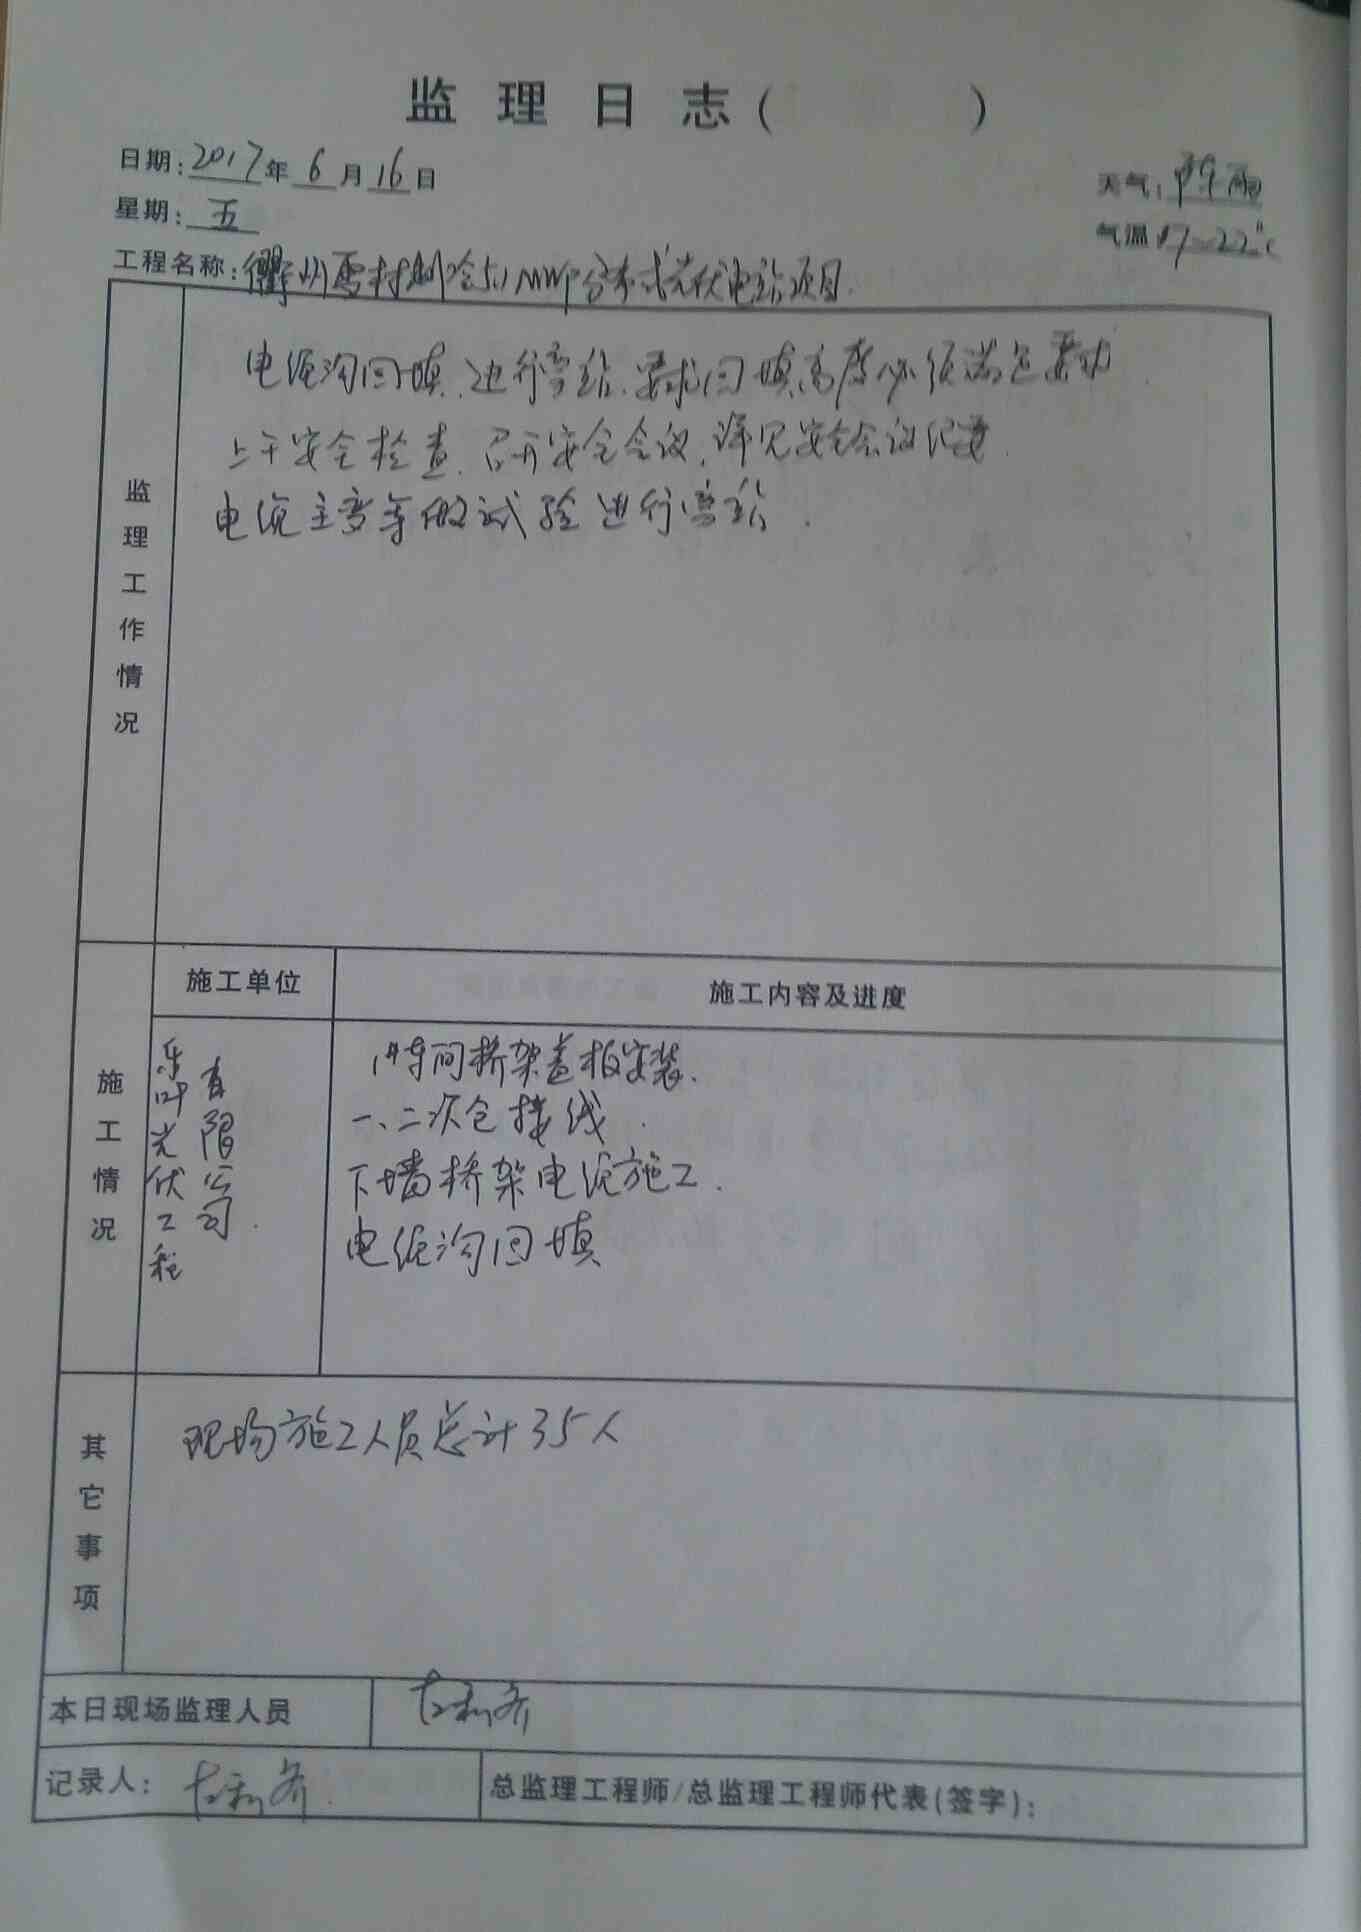 监理日志( )
日期:2017年6月16日
天气:阵雨
星期:五
气温17~22℃
工程名称:衢州雪村制冷5.1MWP分布式光伏电站项目.
监理工作情况
电缆沟回填.进行旁站.要求回填高度必须满足要求.
上午安全检查.召开安全会议,详见安全会议纪要.
电缆主变等做试验进行旁站.
施工情况
施工单位
施工内容及进度
乐叶光伏工程有限公司.
桥架盖板安装.
一、二次仓接线.
下墙桥架电缆施工.
电缆沟回填
其它事项
现场施工人员总计35人
本日现场监理人员
记录人:
总监理工程师/总监理工程师代表(签字):